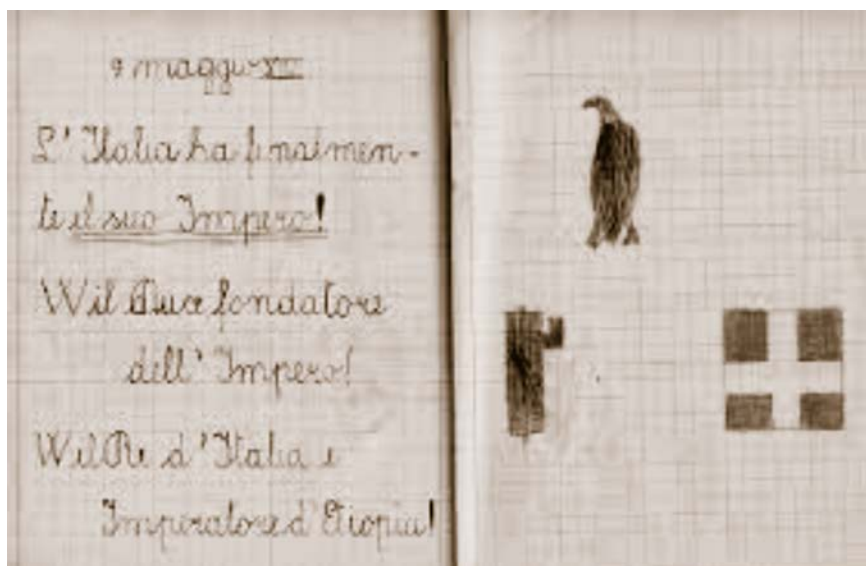 9 maggio XIV
L'Italia ha finalmen-
te il suo Impero!
W il Duce fondatore
dell'Impero!
W il Re d'Italia e
Imperatore d'Etiopia!